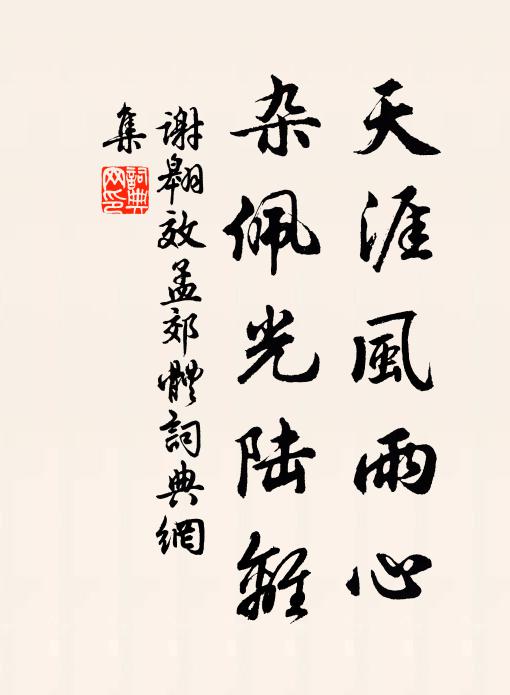 天涯風雨心
杂佩光陆離
谢翱效孟郊體詞典網
集
詞典網印